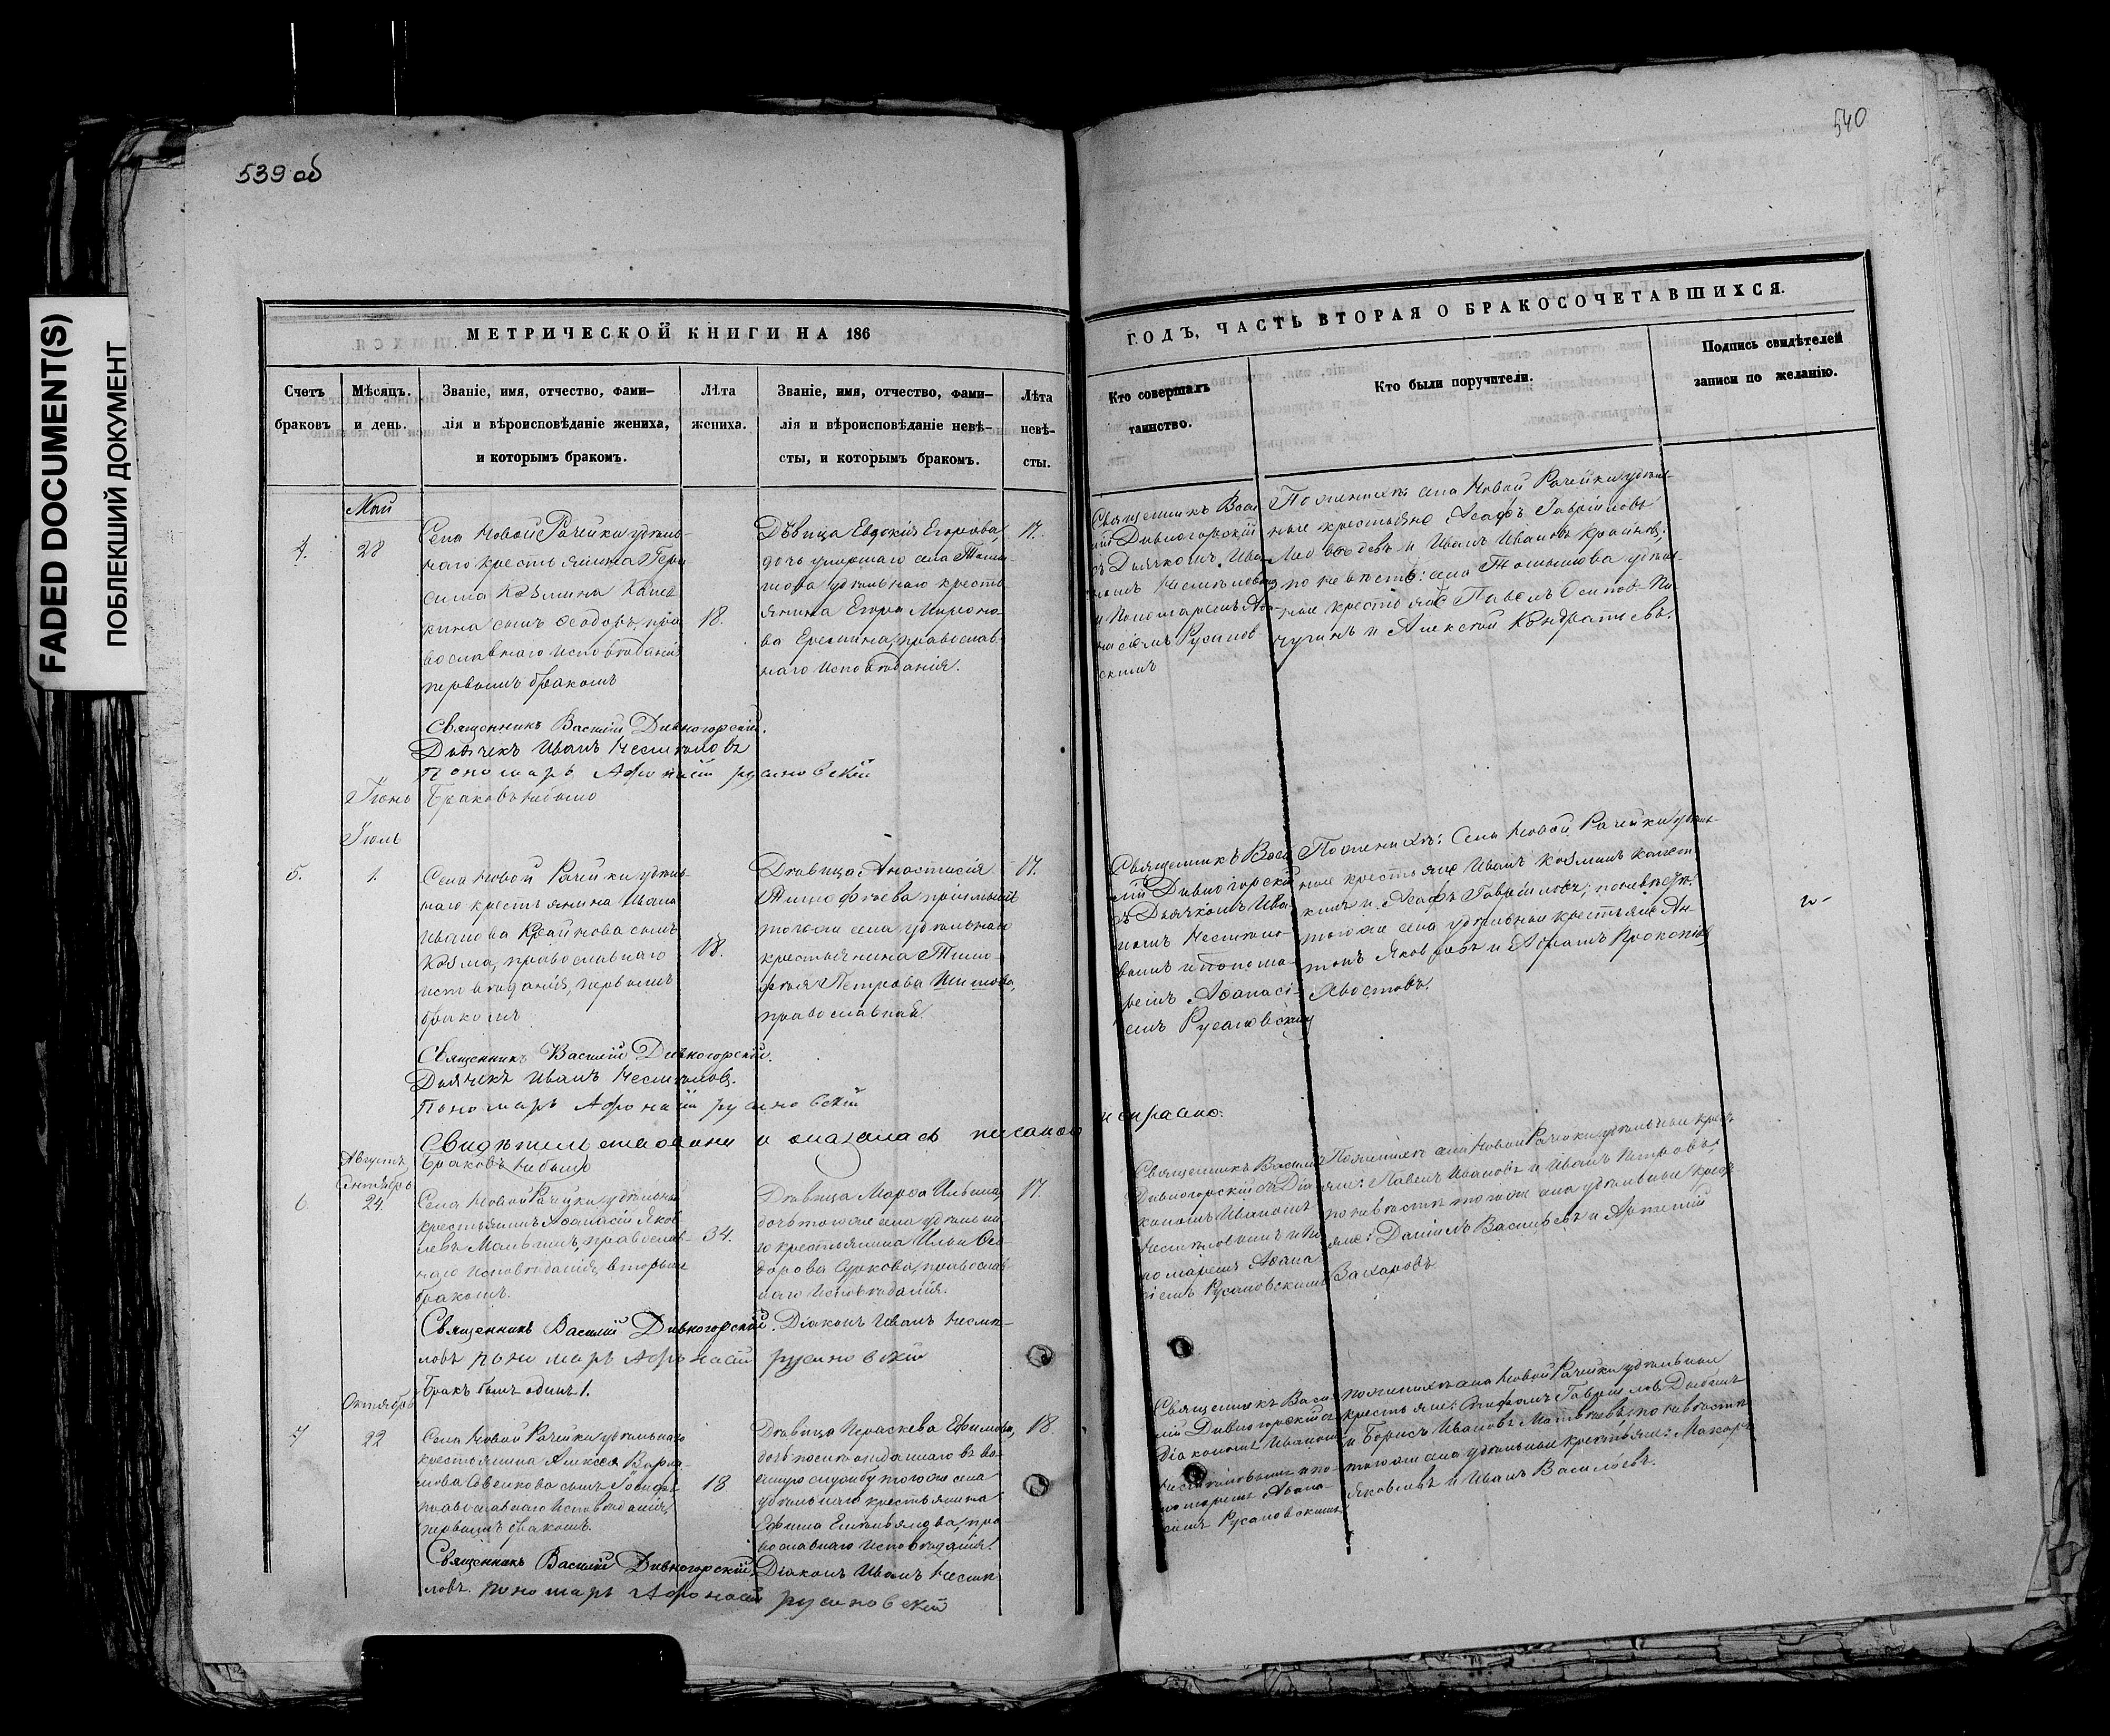 539 об
540
FADED DOCUMENT(S)
ПОБЛЕКШИЙ ДОКУМЕНТ
МЕТРИЧЕСКОЙ КНИГИ НА 186
Счетъ браковъ
Мѣсяцъ. и день.
Званіе, имя, отчество, фами-
лія и вѣроисповѣданіе жениха,
и которымъ бракомъ.
Лѣта жениха.
Званіе, имя, отчество, фами-
лія и вѣроисповѣданіе невѣ-
сты, и которымъ бракомъ.
Лѣта невѣ-
сты.
Май
4.
28
Села Новой Рачейки удѣль-
наго крестьянина Гера
сима Козмина
кина сынъ Ѳеодоръ, пра
вославнаго исповѣданія
первымъ бракомъ
18.
Дѣвица Евдокія Егорова,
дочь умершаго села Томы
шова удѣльнаго кресть
янина Егора Мироно-
ва Еремина, православ
наго исповѣданія.
17.
Священникъ Василій Дивногорскій.
Дьячекъ Иванъ Несмѣловъ
Пономарь Афонасій русановскій
Іюнь
Браковъ небыло
Іюль
5.
1.
Села Новой Рачейки удѣль-
наго крестьянина Ивана
Иванова Крайнова сынъ
Козма, православнаго
исповѣданія, первымъ
бракомъ
18.
Дѣвица Анастасія
Тимофѣева пріемышъ
тогоже села удѣльнаго
крестьянина Тимо-
фѣя Петрова Шишова,
православная.
17.
Священникъ Василій Дивногорскій.
Дьячекъ Иванъ Несмѣловъ.
Пономарь Афонасій русановскій
Свидѣтельствована и оказалась писаною
Августъ
Браковъ небыло
Сентябрь
6
24.
Села Новой Рачейки удѣльный
крестьянинъ Аѳанасій Яков
левъ Манинъ, православ-
наго исповѣданія, вторымъ
бракомъ.
34.
Дѣвица Марѳа Ильина,
дочь тогоже села удѣльна
го крестьянина Ильи Ѳео-
дорова Суркова, православ
наго исповѣданія.
17.
Священникъ Василій Дивногорскій. Діаконъ Иванъ Несмѣ-
ловъ пономарь Афонасій русановскій
Бракъ былъ одинъ 1.
Октябрь
7
22
Села Новой Рачейки удѣльнаго
крестьянина Алексея Варла-
мова сынъ
православнаго исповѣданія,
первымъ бракомъ.
18
Дѣвица Параскева Ефимова,
дочь посли отданнаго въ во-
енную службу тогоже села
удѣльнаго крестьянина
Ефима Емельянова, пра-
вославнаго исповѣданія.
18.
Священникъ Василій Дивногорскій. Діаконъ Иванъ Несмѣ-
ловъ. пономарь Афонасій русановскій
ГОДЪ, ЧАСТЬ ВТОРАЯ О БРАКОСОЧЕТАВШИХСЯ.
Кто совершалъ
таинство.
Кто были поручители.
Подпись свидѣтелей
записи по желанію.
Священникъ Васи
лій Дивногорскій
съ Дьячкомъ Ива
номъ Несмѣловымъ
и Пономаремъ Аѳа-
насіемъ Русанов
скимъ
По женихѣ: села Новой Рачейки удѣль-
ные крестьяне Асафъ Гавриловъ
Медвѣдевъ и Иванъ Ивановъ Крайновъ;
по невѣстѣ: села Томышова удѣль
ные крестьяне Павелъ Осиповъ Пи
чугинъ и Алексѣй Кондратьевъ.
Священникъ Васи
лій Дивногорскій
съ Дьячкомъ Ива
номъ Несмѣло-
вымъ и понома-
ремъ Аѳанасі-
емъ Русановскимъ
По женихѣ: Села Новой Рачейки удѣль-
ные крестьяне Иванъ Козминъ
кинъ и Асафъ Гавриловъ; по невѣстѣ:
тогоже села удѣльные крестьяне Ан-
тонъ Яковлевъ и Абрамъ Прокопіевъ
Хвостовъ.
исправно.
Священникъ Василій
Дивногорскій съ Діа
кономъ Иваномъ
Несмѣловымъ и по
номаремъ Аѳана
сіемъ Русановскимъ
По женихѣ села Новой Рачейки удѣльные крест
яне: Павелъ Ивановъ и Иванъ Петровъ;
по невѣстѣ тогоже села удѣльные крест
яне: Даніилъ Васильевъ и Артемій
Захаровъ
Священникъ Васи-
лій Дивногорскій съ
Діакономъ Иваномъ
Несмѣловымъ и по-
номаремъ Аѳана
сіемъ Русановскимъ
По женихѣ села Новой Рачейки удѣльные
крестьяне: Гавриловъ
и Борисъ Ивановъ Матвѣевъ; по невѣстѣ
тогоже села удѣльные крестьяне: Макаръ
Яковлевъ и Иванъ Васильевъ.